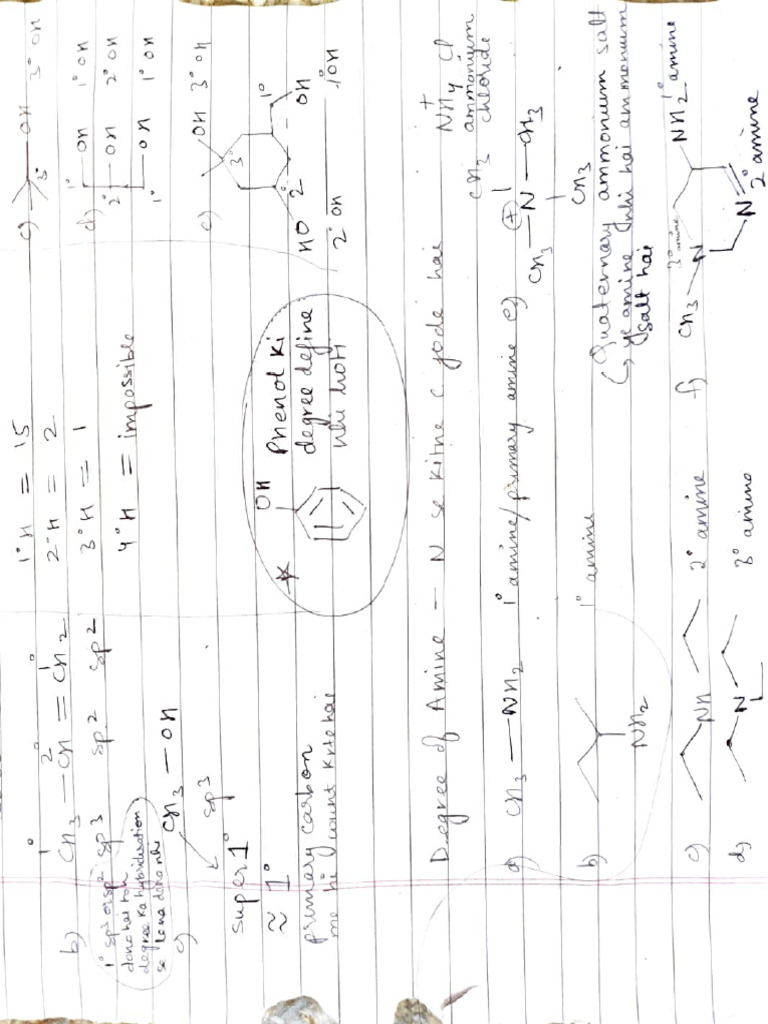 1°H = 15
2°H = 2
3°H = 1
4°H = impossible
b) CH3 — CH = CH2
1° 2° 1°
sp3 sp2 sp2
1° sp3 or sp2
dono hai toh
degree ka hybridisation
se lena dena nhi
c) CH3 — OH
sp3
super 1°
≈ 1°
primary carbon
me hi count krte hai
OH
Phenol ki
degree define
nhi hoti
c) OH 3° OH
3°
d) 1° OH 1° OH
2° OH 2° OH
1° OH 1° OH
e) OH 3° OH
3°
1°
HO 2° OH
2° OH 1° OH
Degree of Amine — N se kitne C jode hai
NH4 Cl
+
ammonium
chloride
a) CH3 — NH2 1° amine/primary amine
b) NH2 1° amine
c) NH 2° amine
d) N 3° amino
e) CH3
CH3 — N — CH3
+
CH3
Quaternary ammonium salt
ye amine nhi hai ammonium
salt hai
f) CH3 — N 3° amine
NH2 1° amine
N 2° amine